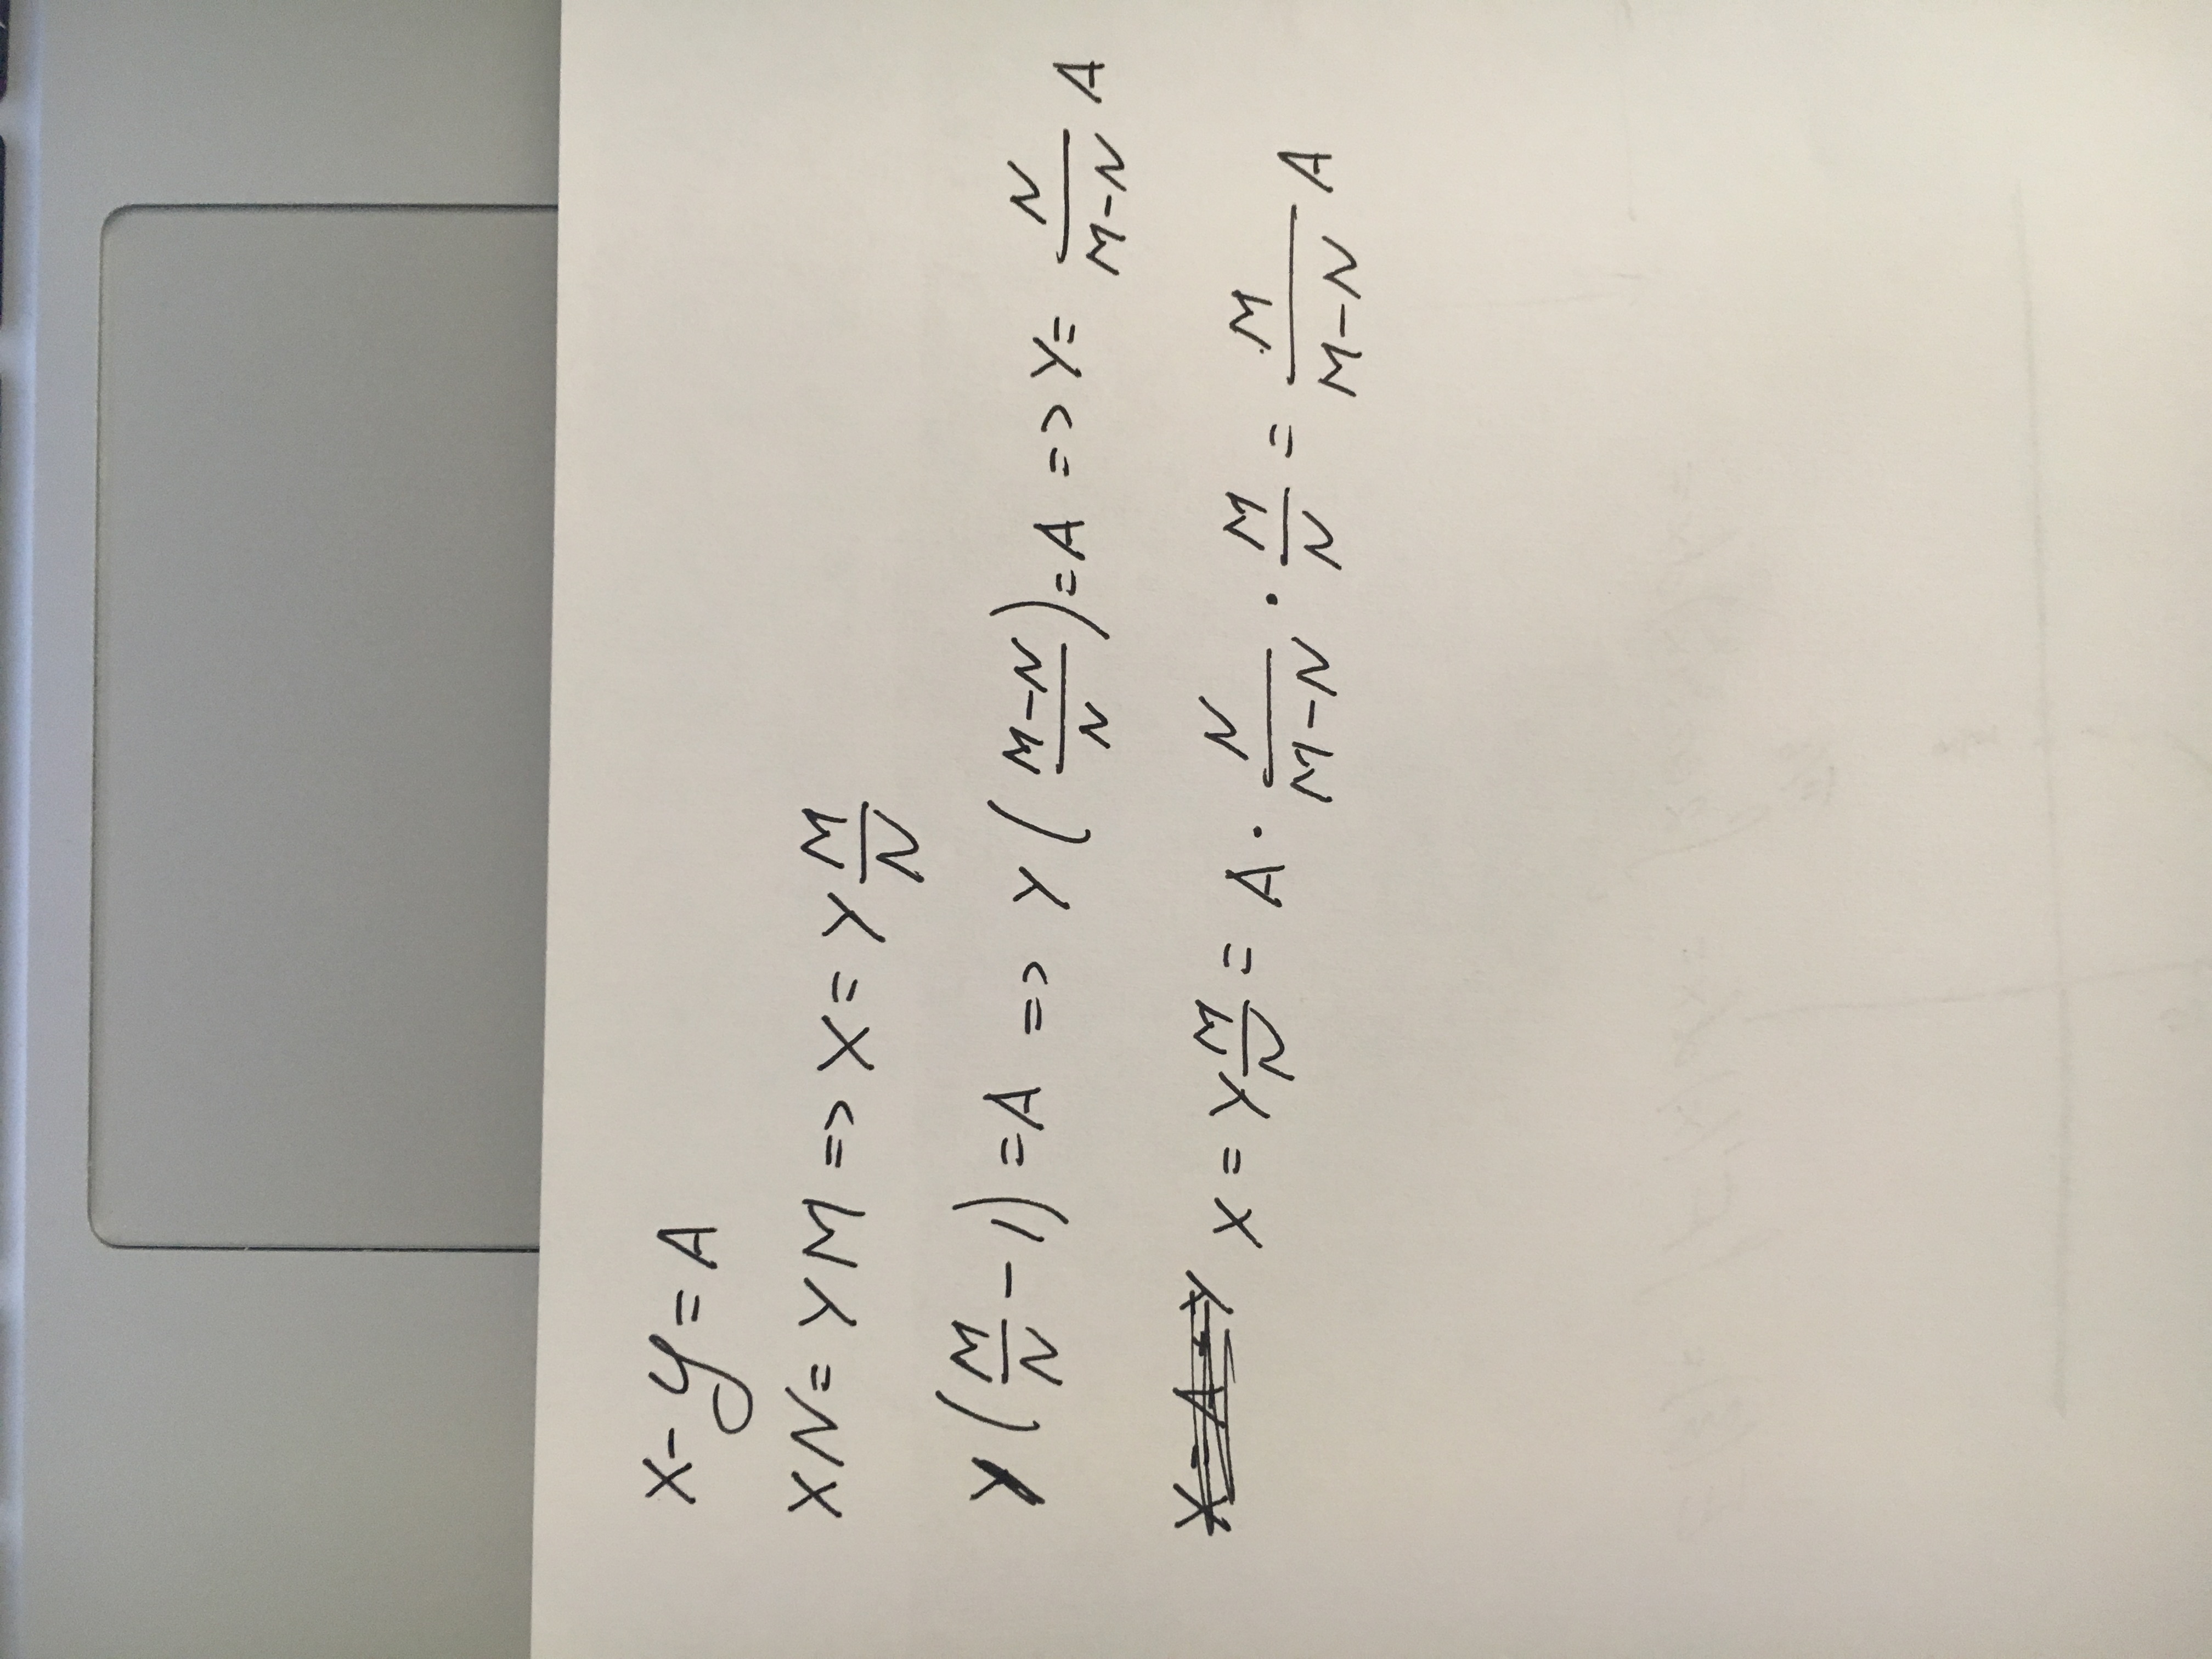 x - y = A
XN = YM => X = Y M/N
Y (M/N - 1) = A => Y ( M-N/N ) = A => Y = N/M-N A
X = A + Y X = Y M/N = A · N/M-N · M/N = M/M-N A